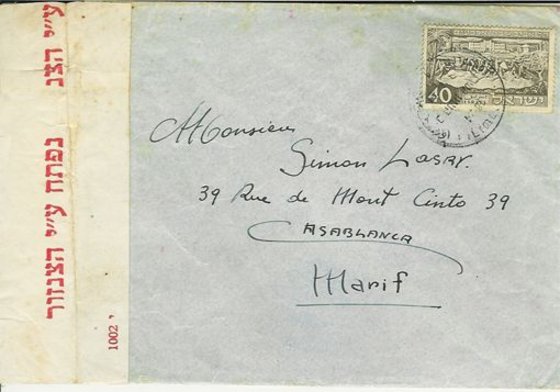 נפתח ע״י הצנזור
ע״י הצנ
1002 י
40
ישראל
Monsieur
Simon Lasry.
39 Rue de Mont Cinto 39
CASABLANCA
Marif